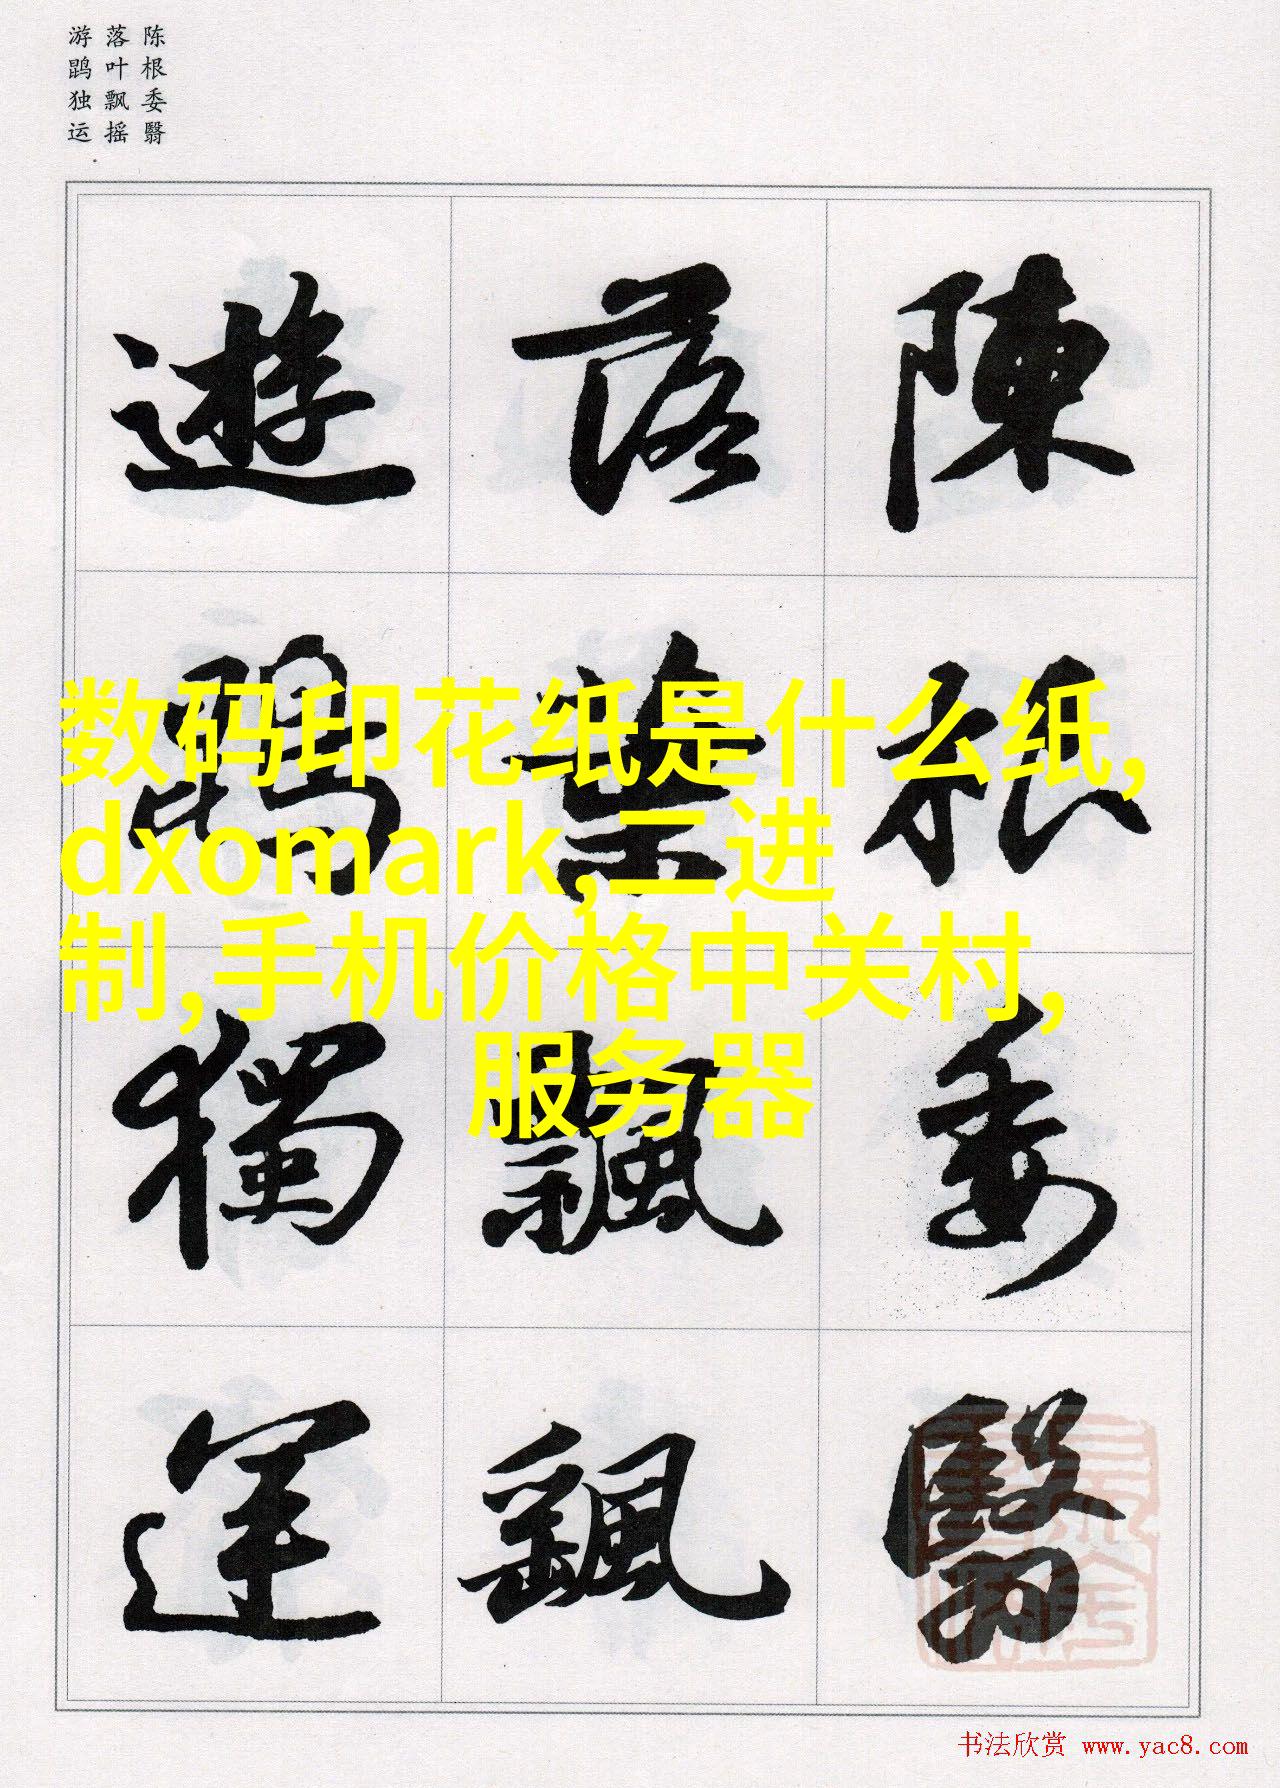 陈根委翳
落叶飘摇
游鹍独运
陳根委翳
落葉飄颻
遊鵾獨運
数码印花纸是什么纸,
dxomark,二进
制,手机价格中关村,
服务器
书法欣赏 www.yac8.com